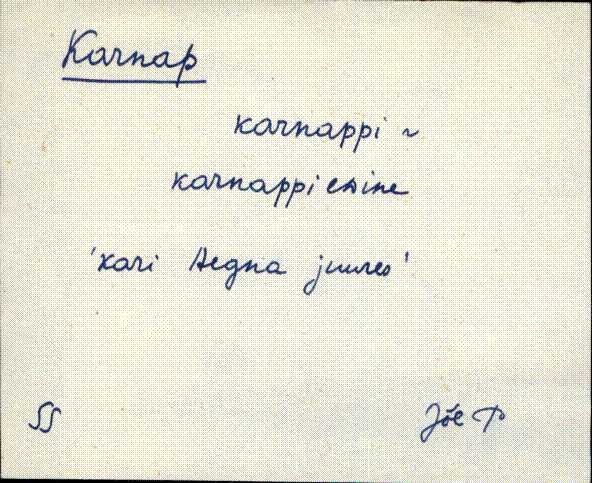 Karnap
karnappi ~
karnappi esine
'kari Aegna juures'
SS Jõe P